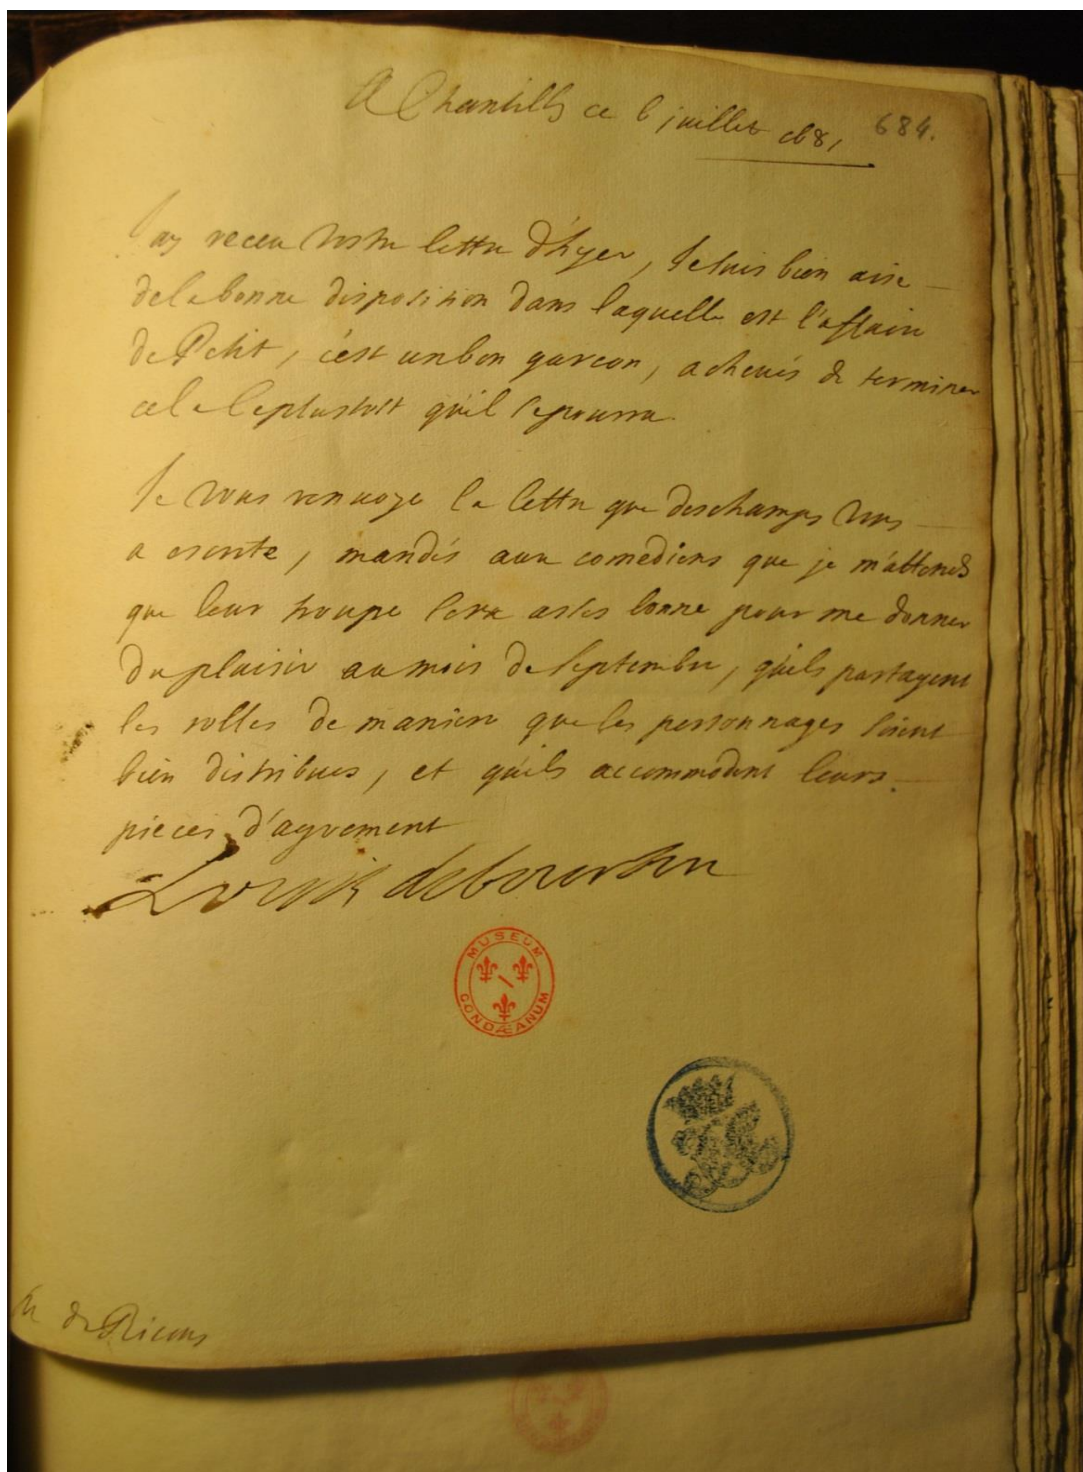 A Chantilly ce 6 juillet 1681
684.
J'ay receu vostre lettre d'hyer, Je suis bien aise
de la bonne disposition dans laquelle est l'affaire
de Petit, c'est un bon garcon, achevés de terminer
cela le plustost qu'il se pourra
Je vous renvoye la lettre que deschamps vous
a escrite, mandés aux comediens que je m'attends
que leur troupe sera assés bonne pour me donner
du plaisir au mois de septembre, qu'ils partagent
les rolles de maniere que les personnages soient
bien distribues, et qu'ils accommodent leurs
pieces d'agrement
Louis de bourbon
MUSEUM CONDÆANUM
de Ricous